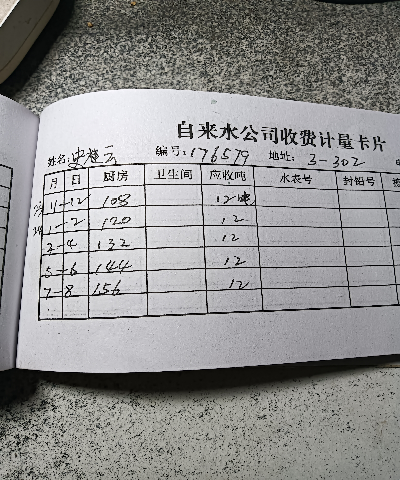 自来水公司收费计量卡片
姓名: 史 云 编号: 176579 地址: 3-302
月 日 厨房 卫生间 应收吨 水表号 封铅号
11-12 108 12吨
1-2 120 12
3-4 132 12
5-6 144 12
7-8 156 12